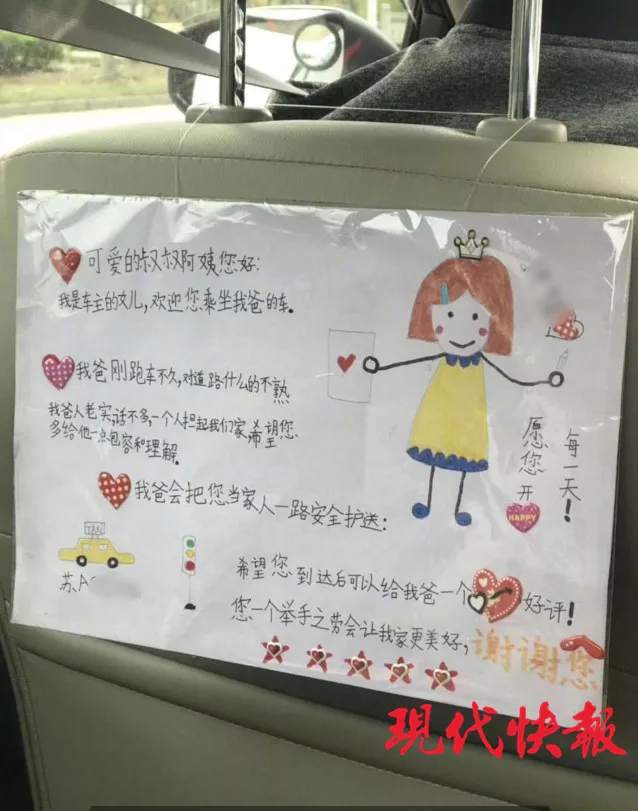 可爱的叔叔阿姨您好:
我是车主的女儿,欢迎您乘坐我爸的车。
我爸刚跑车不久,对道路什么的不熟
我爸人老实,话不多,一个人担起我们家希望您
多给他一点包容和理解。
我爸会把您当家人一路安全护送:
希望您到达后可以给我爸一个好评!
您一个举手之劳会让我家更美好,谢谢您
愿您开
HAPPY
每一天!
TAXI
苏A
现代快報